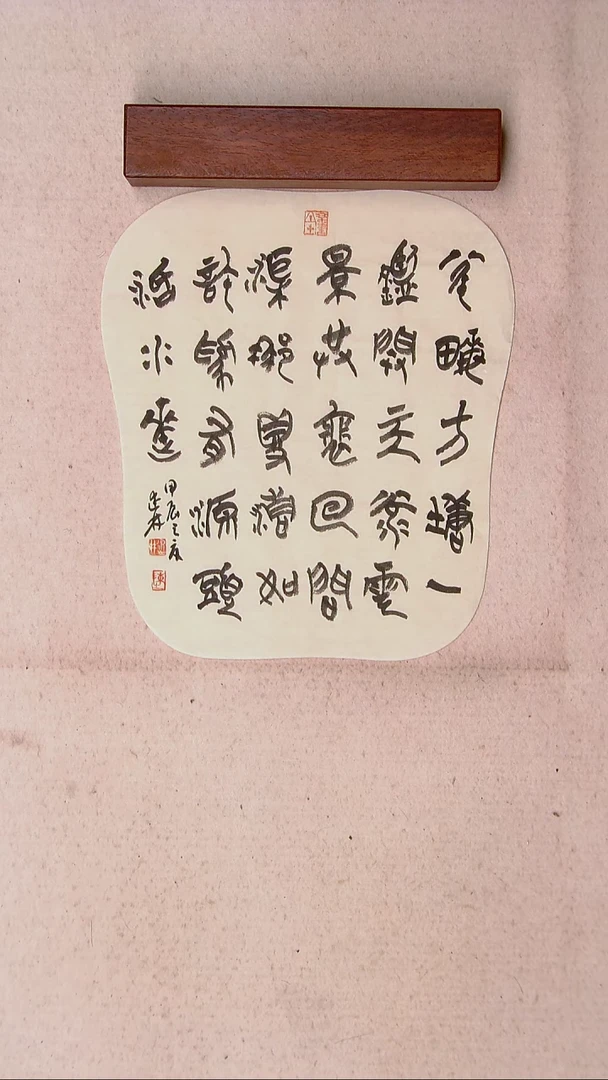 半畝方塘一
鑑開天光雲
景共裵回問
渠那得清如
許為有源頭
活水來
甲辰之夏